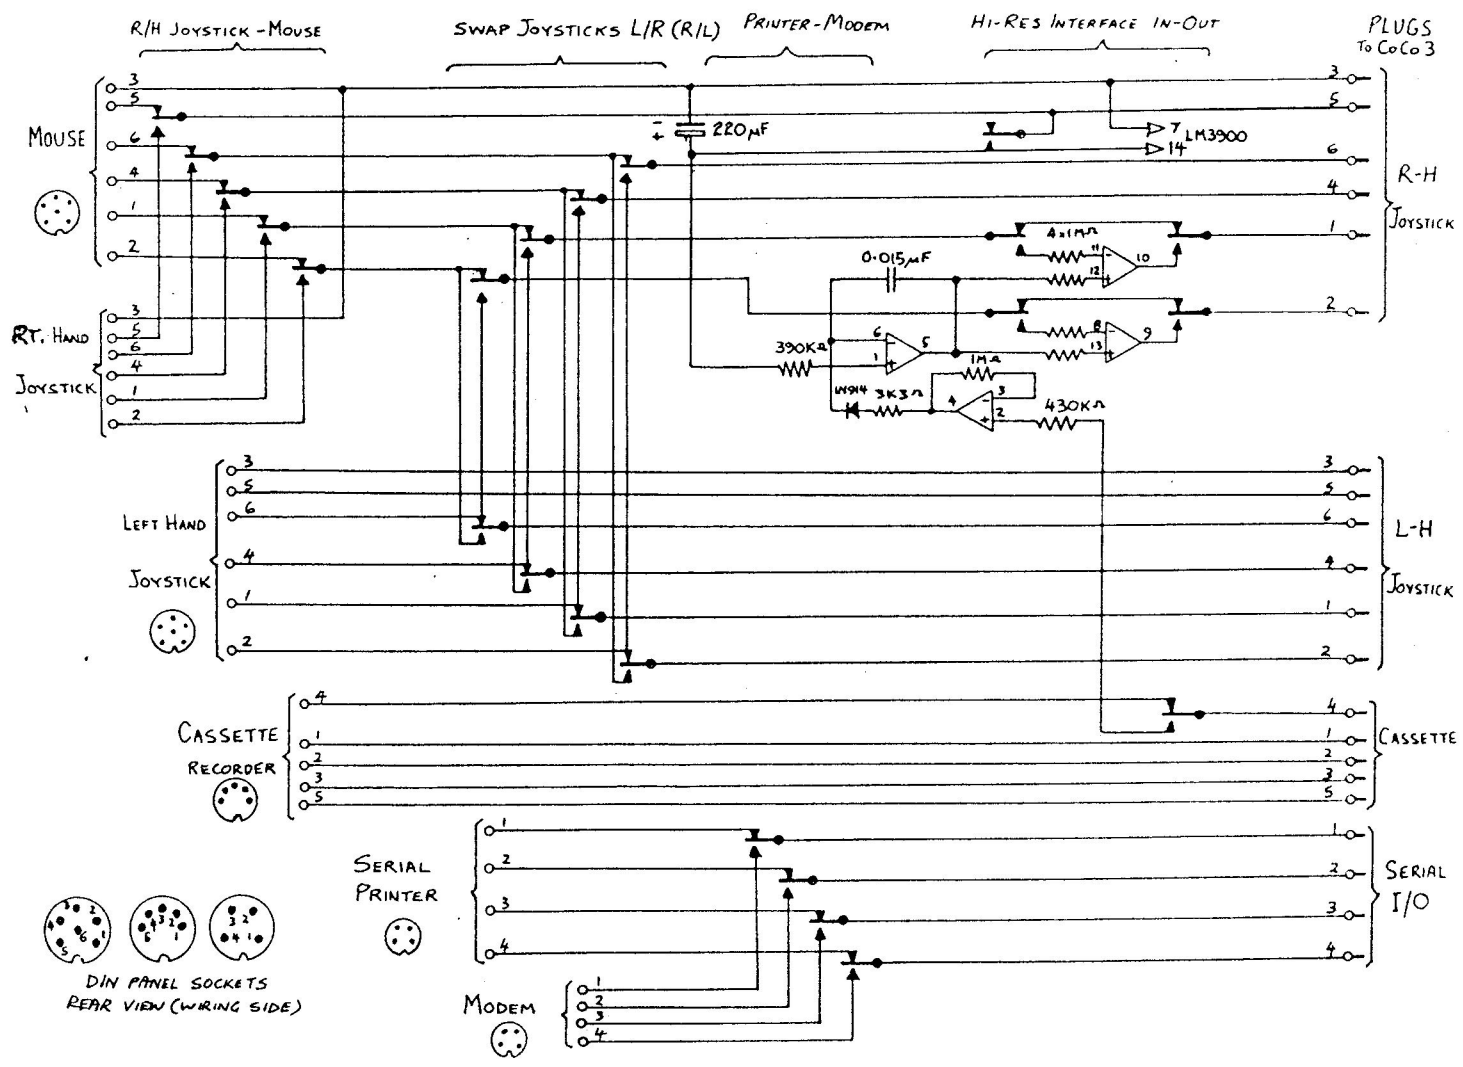 R/H JOYSTICK - MOUSE
SWAP JOYSTICKS L/R (R/L)
PRINTER-MODEM
HI-RES INTERFACE IN-OUT
PLUGS
TO COCO 3
MOUSE
3
5
6
4
1
2
RT. HAND
JOYSTICK
3
5
6
4
1
2
- +
220µF
7
14
LM3900
4x1MΩ
11
12
- +
10
0.015µF
8
13
- +
9
390KΩ
6
1
- +
5
1N914
3K3Ω
1MΩ
4
3
2
- +
430KΩ
3
5
6
4
1
2
R-H
JOYSTICK
LEFT HAND
JOYSTICK
3
5
6
4
1
2
3
5
6
4
1
2
L-H
JOYSTICK
CASSETTE
RECORDER
4
1
2
3
5
4
1
2
3
5
CASSETTE
SERIAL
PRINTER
1
2
3
4
1
2
3
4
SERIAL
I/O
MODEM
1
2
3
4
3 2
4 6 1
5
4 3 2
5 1
3 2
4 1
DIN PANEL SOCKETS
REAR VIEW (WIRING SIDE)